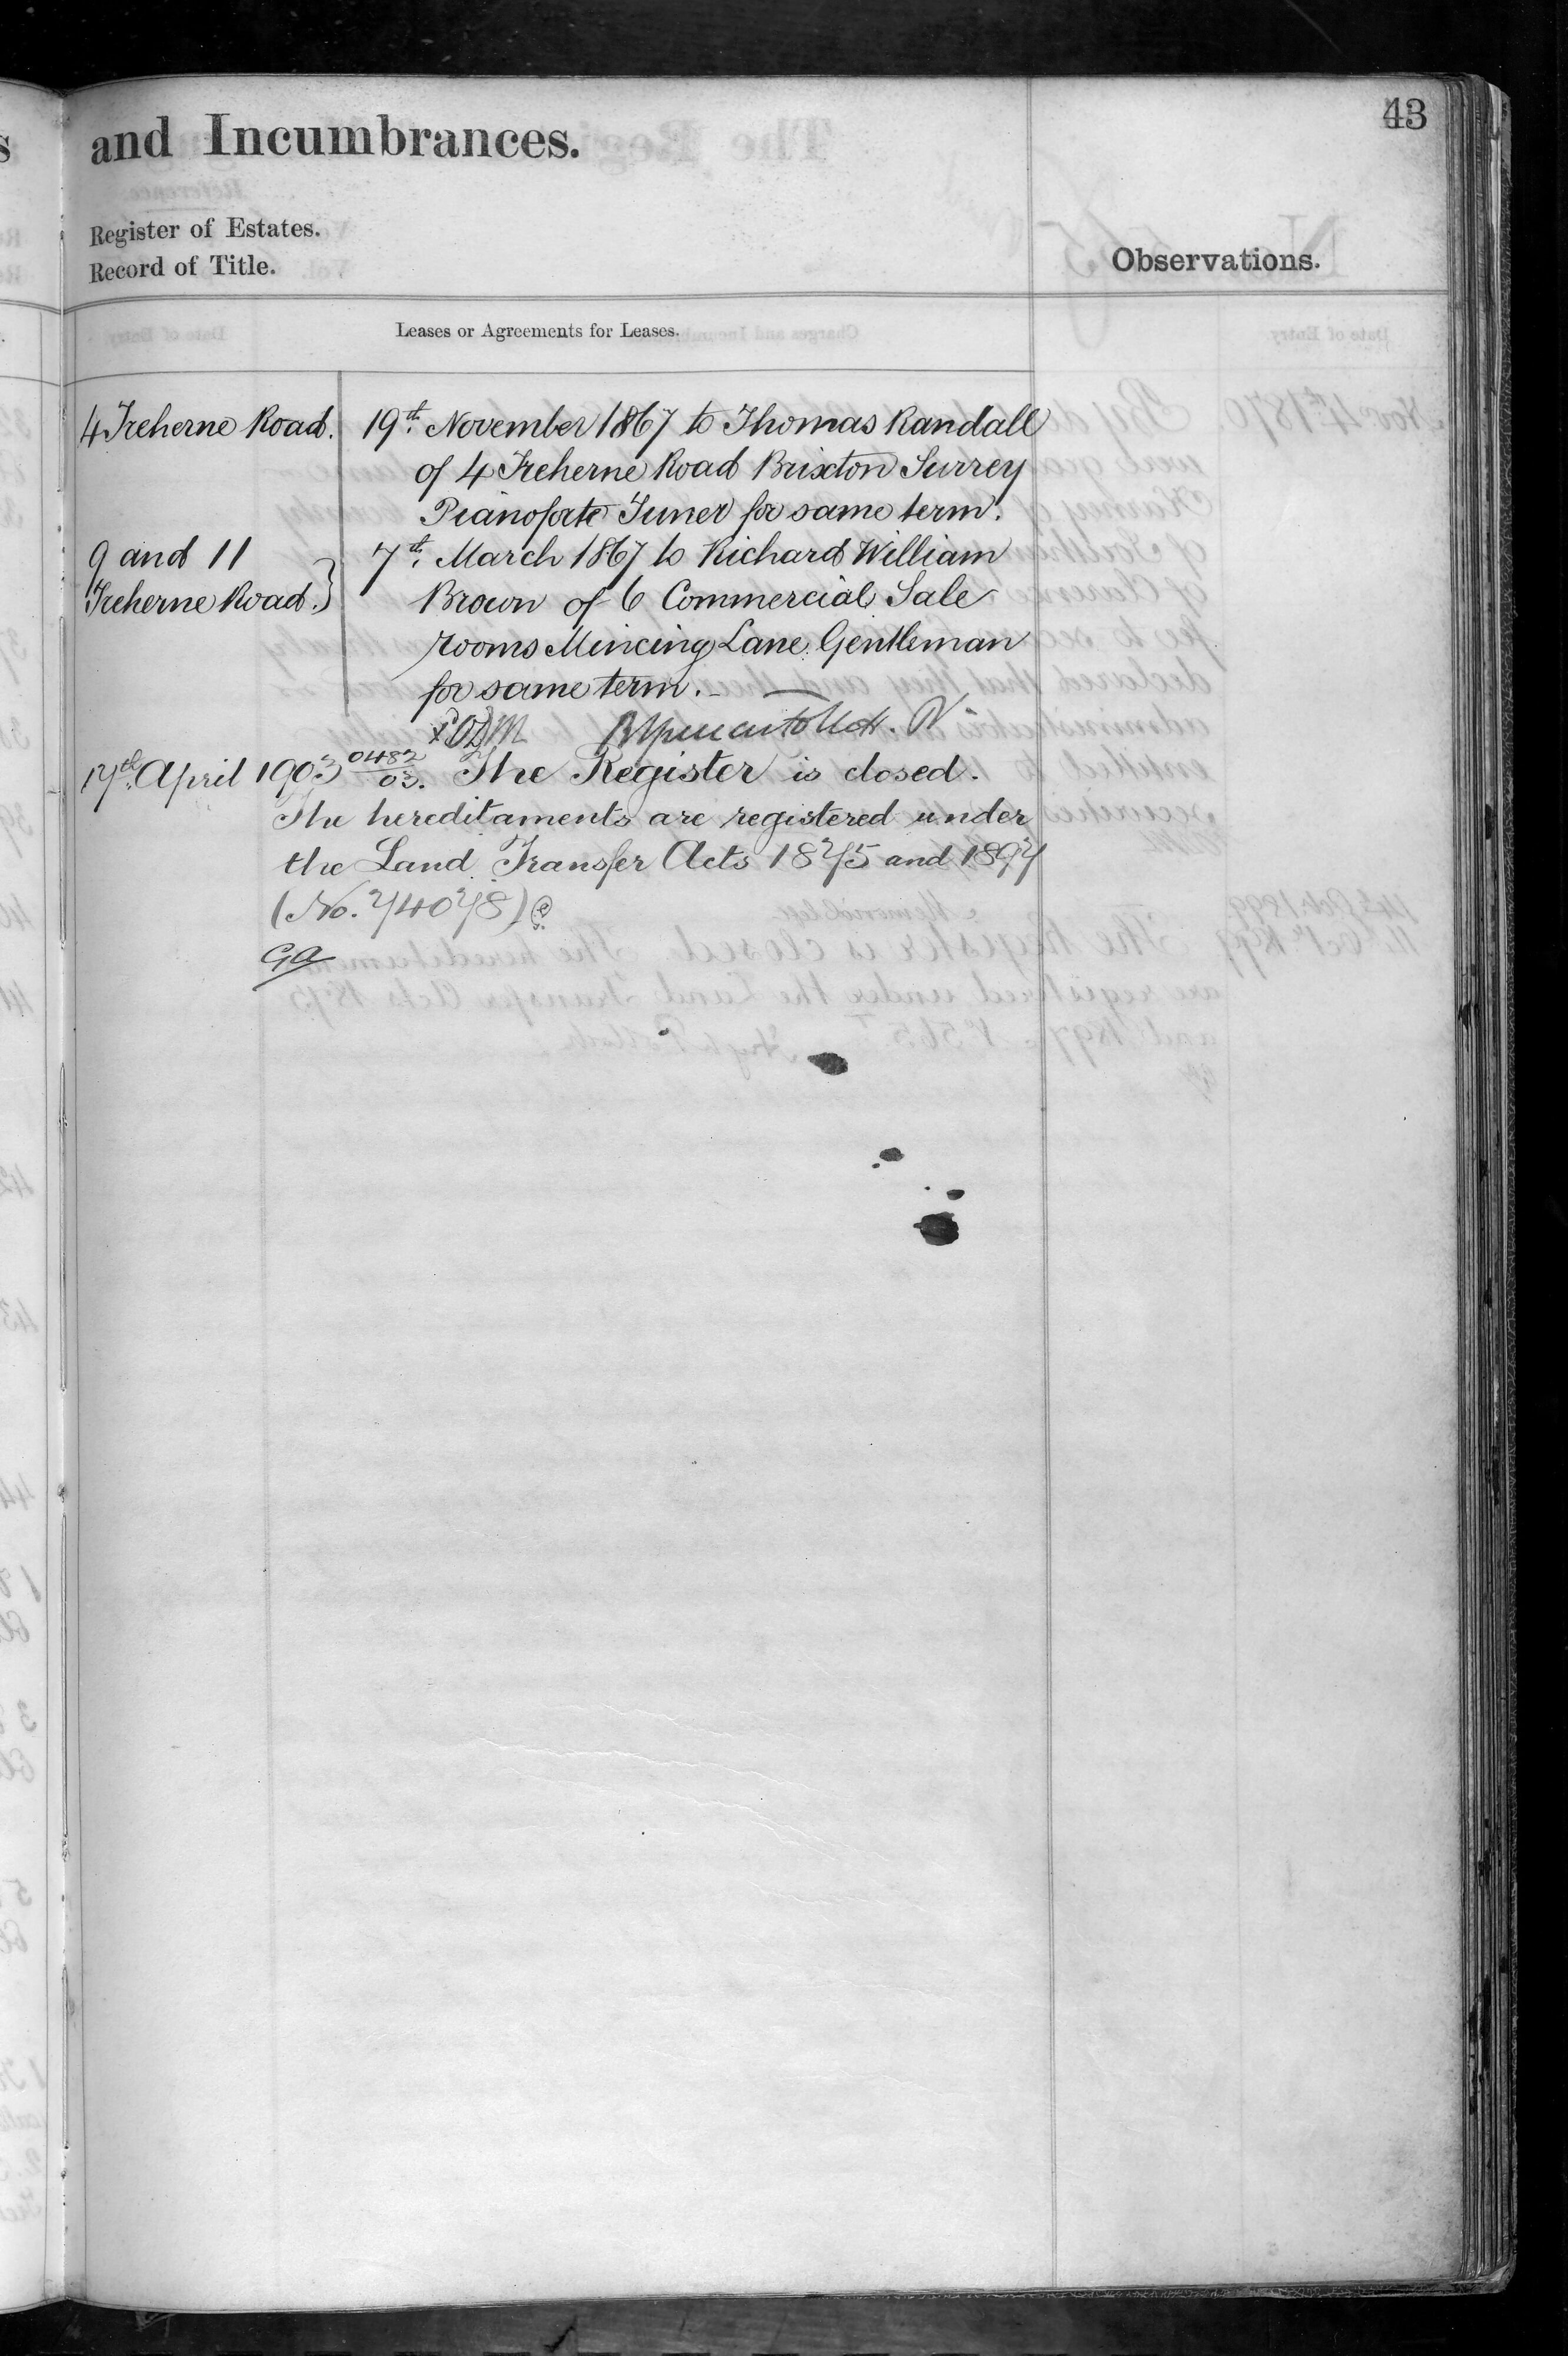 43
and Incumbrances.
Register of Estates.
Record of Title.
Observations.
Leases or Agreements for Leases.
4 Treherne Road. 19th November 1867 to Thomas Randall
of 4 Treherne Road Brixton Surrey
Pianoforte Tuner for same term.
9 and 11 7th March 1867 to Richard William
Treherne Road. Brown of 6 Commercial Sale
rooms Mincing Lane Gentleman
for same term.
17th April 1903 0482/03. The Register is closed.
The hereditaments are registered under
the Land Transfer Acts 1875 and 1897
(No. 74078)
GA